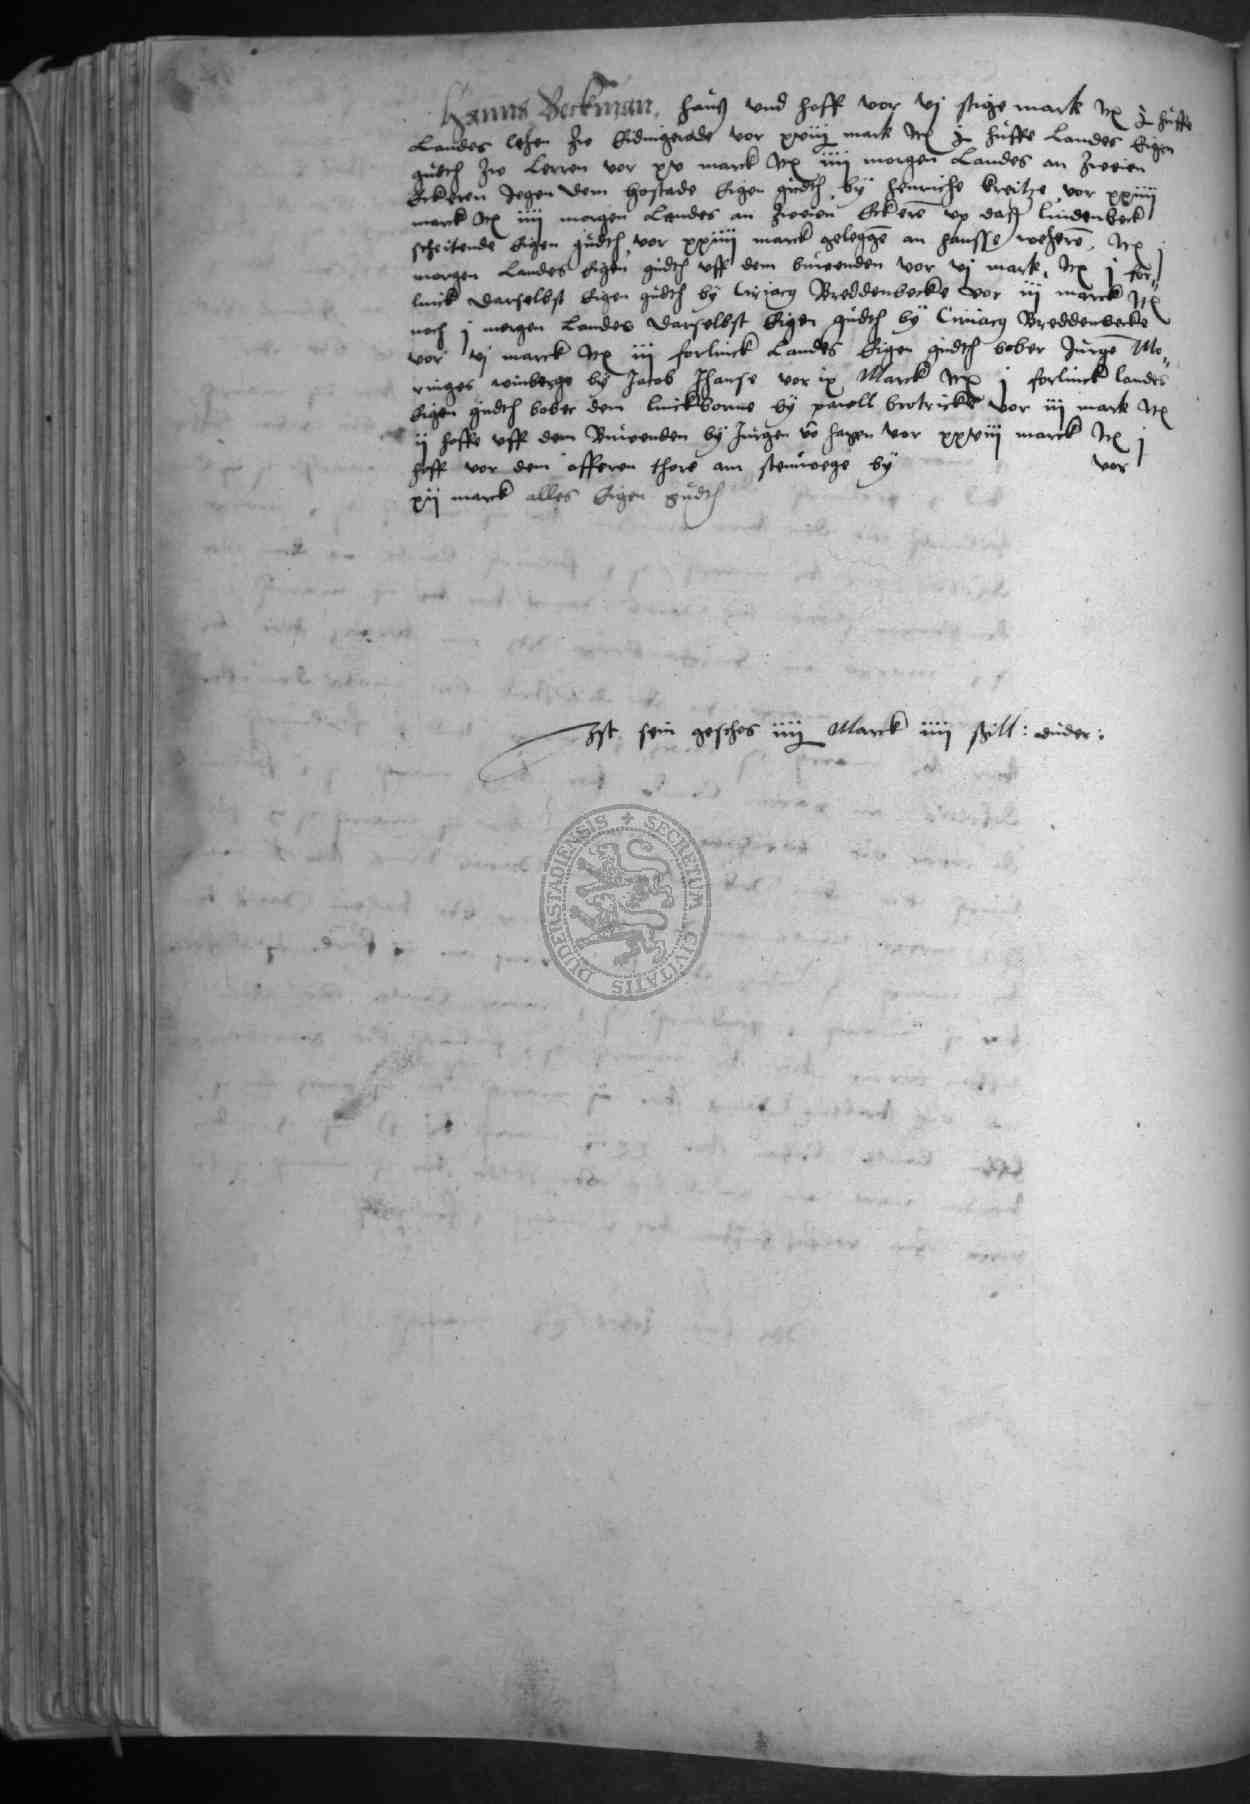 Hanns Beckman, hauß vnd hoff vor vj stige mark Itꝫ j huffe
Landes lehen zw Eidingerode vor xviij mark Itꝫ huffe Landes Eigen
gudth zw Lerren vor xv marck Itꝫ iiij morgen Landes an zweien
Eckeren Jegen dem hostade Eigen gudth by henriche kreitze vor xxiiij
marck Itꝫ iiij morgen Landes an zweien Eckerē vp daß lindenbeck
scheitende Eigen gudth vor xxiiij marck geleggē an hansse weherē, Itꝫ j
morgen Landes Eigen gudth vff dem buwenden vor vj mark, Itꝫ j for-
linck darselbst Eigen gudth by Ciriacg Breddenbecke vor iij marck Itꝫ
noch j morgen Landes darselbst Eigen gudth by Ciriacg Breddenbecke
vor vj marck Itꝫ iij forlinck Landes Eigen gudth bober Jurge Mo-
ringes winberge by Jacob Hanse vor ix Marck Itꝫ j forlinck landes
Eigen gudth bober dem linckborne by pawell brotricke vor iij mark Itꝫ
ij hoffe vff dem Buwenden by Jurgen vō hagen vor xxviij marck Itꝫ j
hoff vor dem offeren thore am steinwege by vor
xij marck alles Eigen gudth
Ist sein geschos iiij Marck iiij ßill: duder:
SECRETUM CIVITATIS DUDERSTADIENSIS